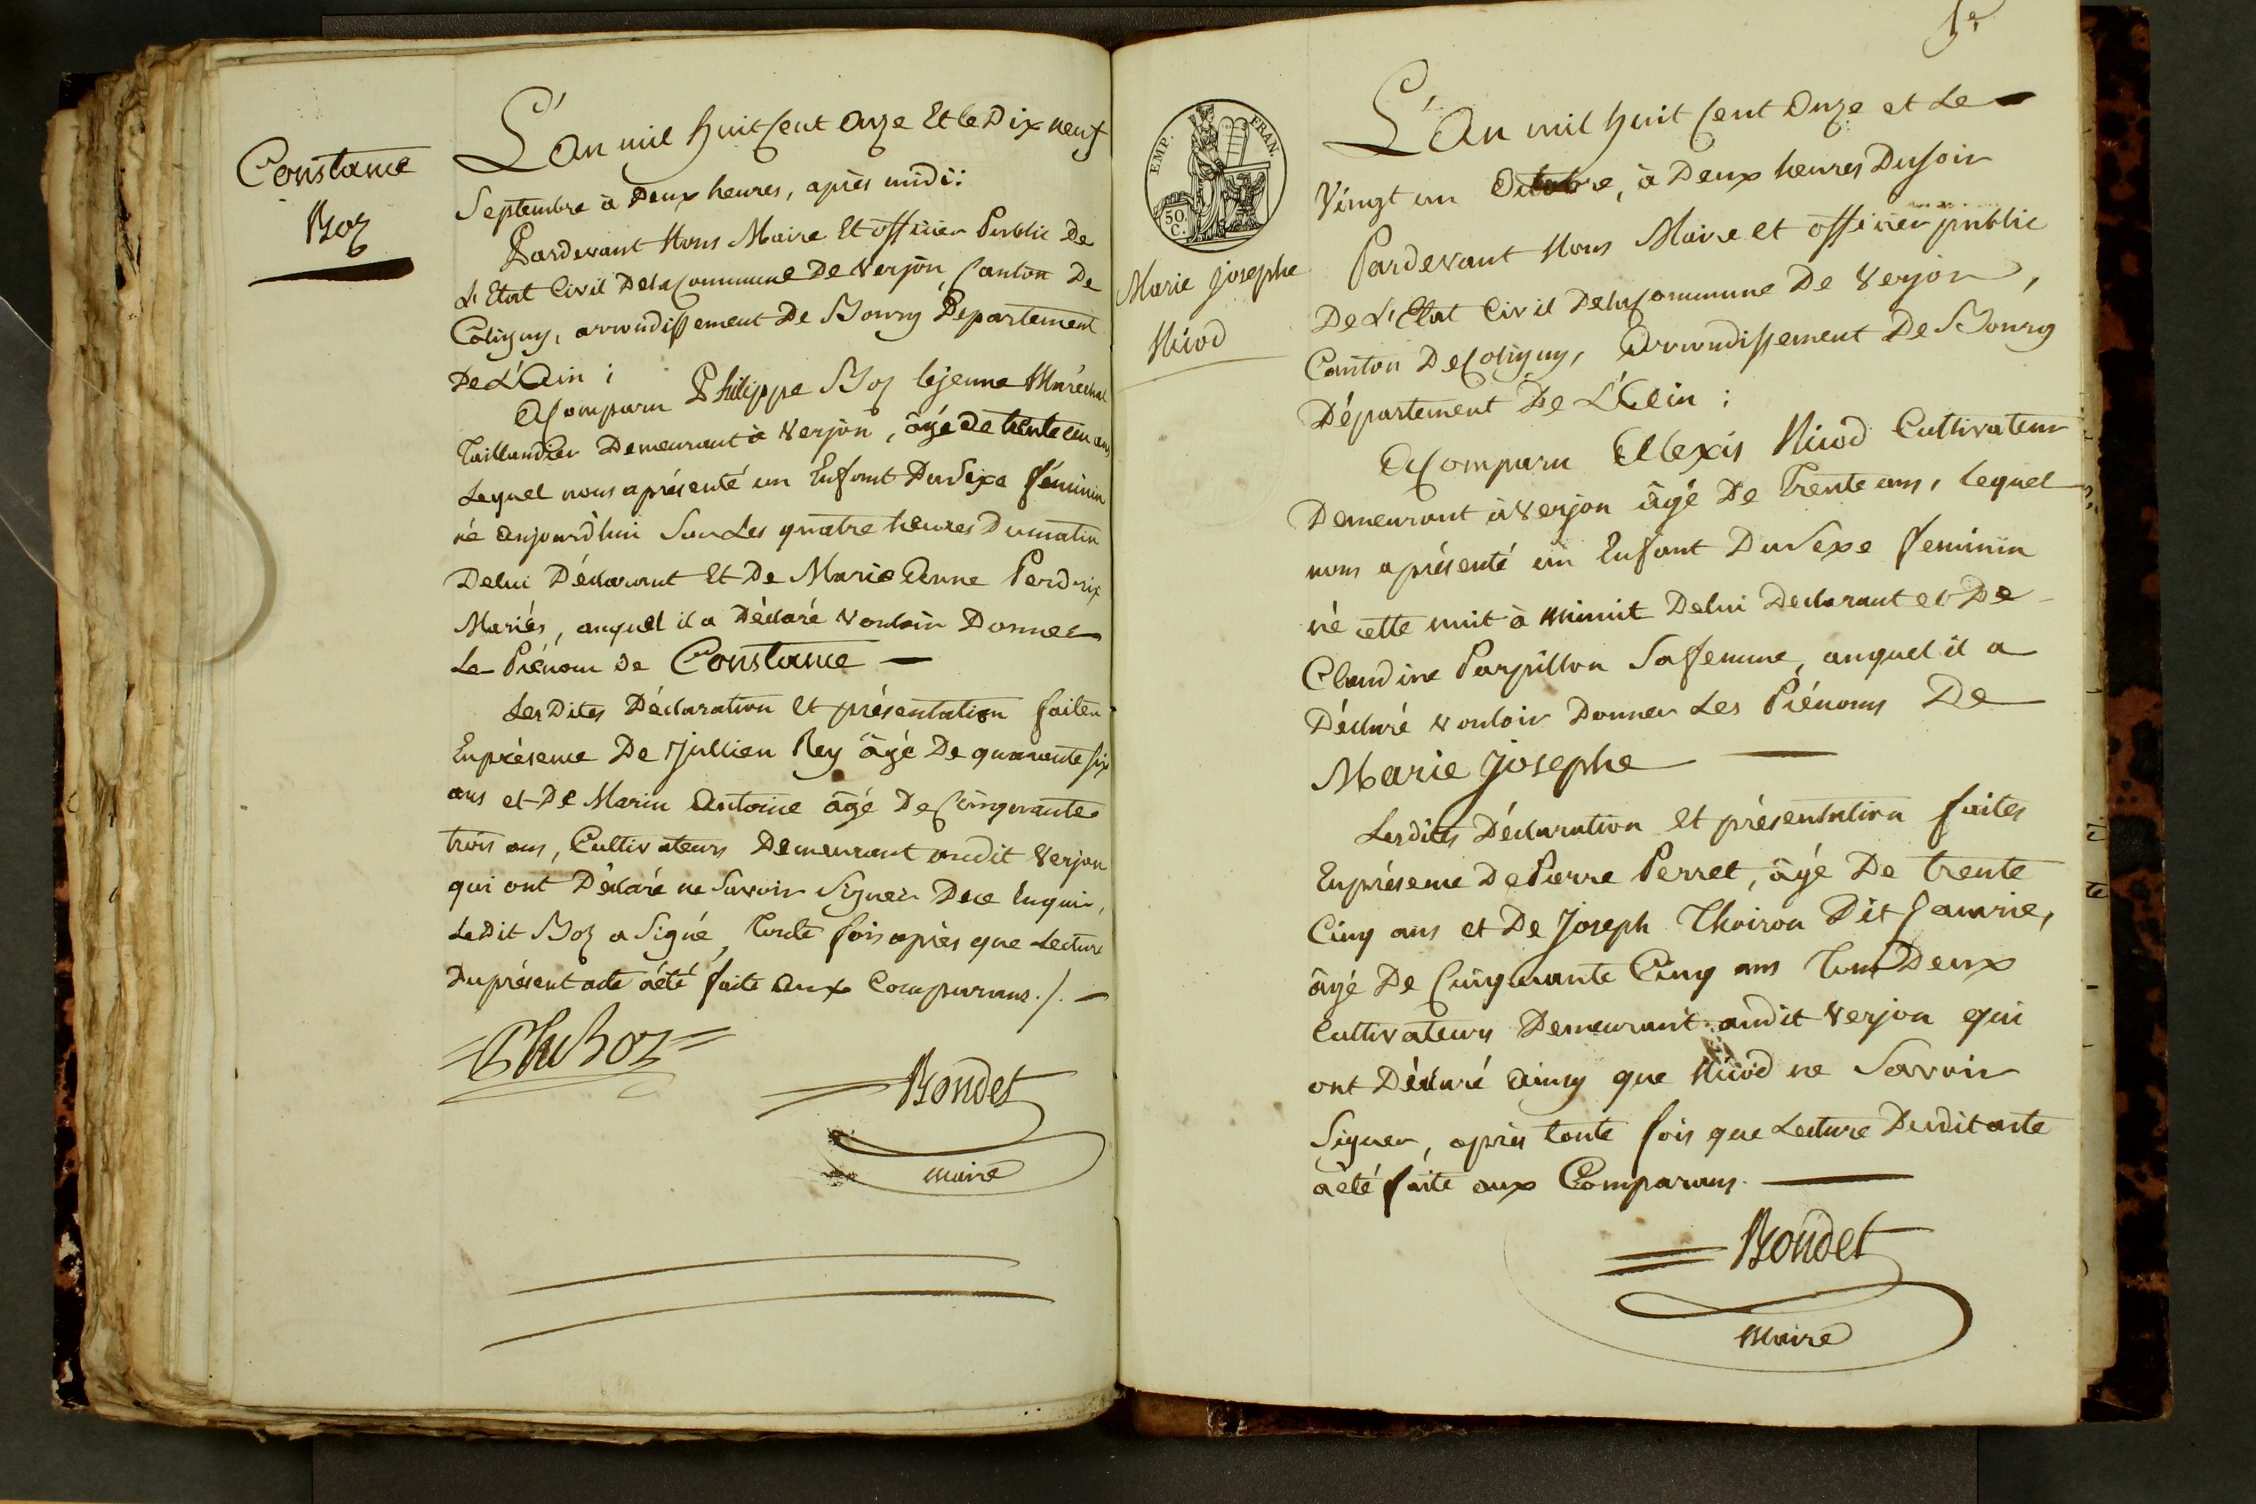 Constance
Boz
L'An mil huit Cent Onze Et le Dix neuf
Septembre à Deux heures, après midi:
Pardevant Nous Maire Et officier Public De
L'Etat Civil De la Commune De Verjon, Canton De
Coligny, arrondissement De Bourg Département
De L'Ain;
A Comparu Philippe Boz le jeune Maréchal
Taillandier Demeurant à Verjon, âgé De trente un ans
Lequel nous a présenté un Enfant Du Sexe féminin
né aujourd'hui Sur Les quatre heures Du matin
De lui Déclarant Et De Marie Anne Perdrix
Mariés, auquel il a Déclaré Vouloir Donner
Le Prénom De Constance
Les Dites Déclaration Et présentation faites
En présence De Jullien Rey âgé De quarante Six
ans et De Marin Antoine âgé De Cinquante
trois ans, Cultivateurs Demeurant audit Verjon
qui ont Déclaré ne Savoir Signer De ce Enquis,
Le Dit Boz a Signé, toute fois après que Lecture
Du présent acte a été faite aux Comparans./.
Ph Boz
Bondet
maire
EMP. FRAN.
50.
C.
Marie Josephe
Nicod
L'An mil huit Cent Onze et Le
Vingt un Octobre, à Deux heures Du soir
Pardevant Nous Maire et officier public
De L'Etat Civil De la Commune De Verjon,
Canton De Coligny, Arrondissement De Bourg
Département De L'Ain;
A Comparu Alexis Nicod Cultivateur
Demeurant à Verjon âgé De Trente ans, lequel
nous a présenté un Enfant Du Sexe feminin
né cette nuit à minuit De lui Declarant et De
Claudine Parpillon Sa femme, auquel il a
Déclaré vouloir Donner Les Prénoms De
Marie Josephe
Les dites Déclaration Et présentation faites
En présence De Pierre Perret, âgé De trente
Cinq ans et De Joseph Thoiron Dit
âgé De Cinquante Cinq ans tous Deux
Cultivateurs Demeurant audit Verjon qui
ont Déclaré ainsy que Nicod ne Savoir
Signer, après toute fois que Lecture Dudit acte
a été faite aux Comparans.
Bondet
Maire